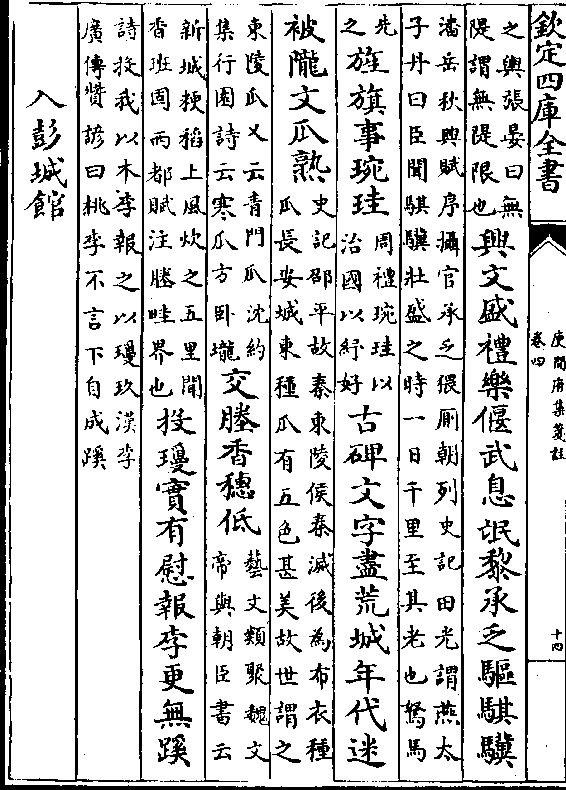 欽定四庫全書
庾開府集箋註
卷四
十四
之輿張晏曰無
隄謂無隄限也
興文盛禮樂偃武息氓黎承乏驅騏驥
潘岳秋興賦序攝官承乏猥厠朝列史記田光謂燕太
子丹曰臣聞騏驥壯盛之時一日千里至其老也駑馬
先
之
旌旗事琬珪
周禮琬珪以
治國以紓好
古碑文字盡荒城年代迷
被隴文瓜熟
史記邵平故秦東陵侯秦滅後為布衣種
瓜長安城東種瓜有五色甚美故世謂之
東陵瓜又云青門瓜沈約
集行園詩云寒瓜方卧壠
交塍香穗低
藝文類聚魏文
帝與朝臣書云
新城粳稻上風炊之五里聞
香班固兩都賦注塍畦界也
投瓊實有慰報李更無蹊
詩投我以木李報之以瓊玖漢李
廣傳贊諺曰桃李不言下自成蹊
入彭城館